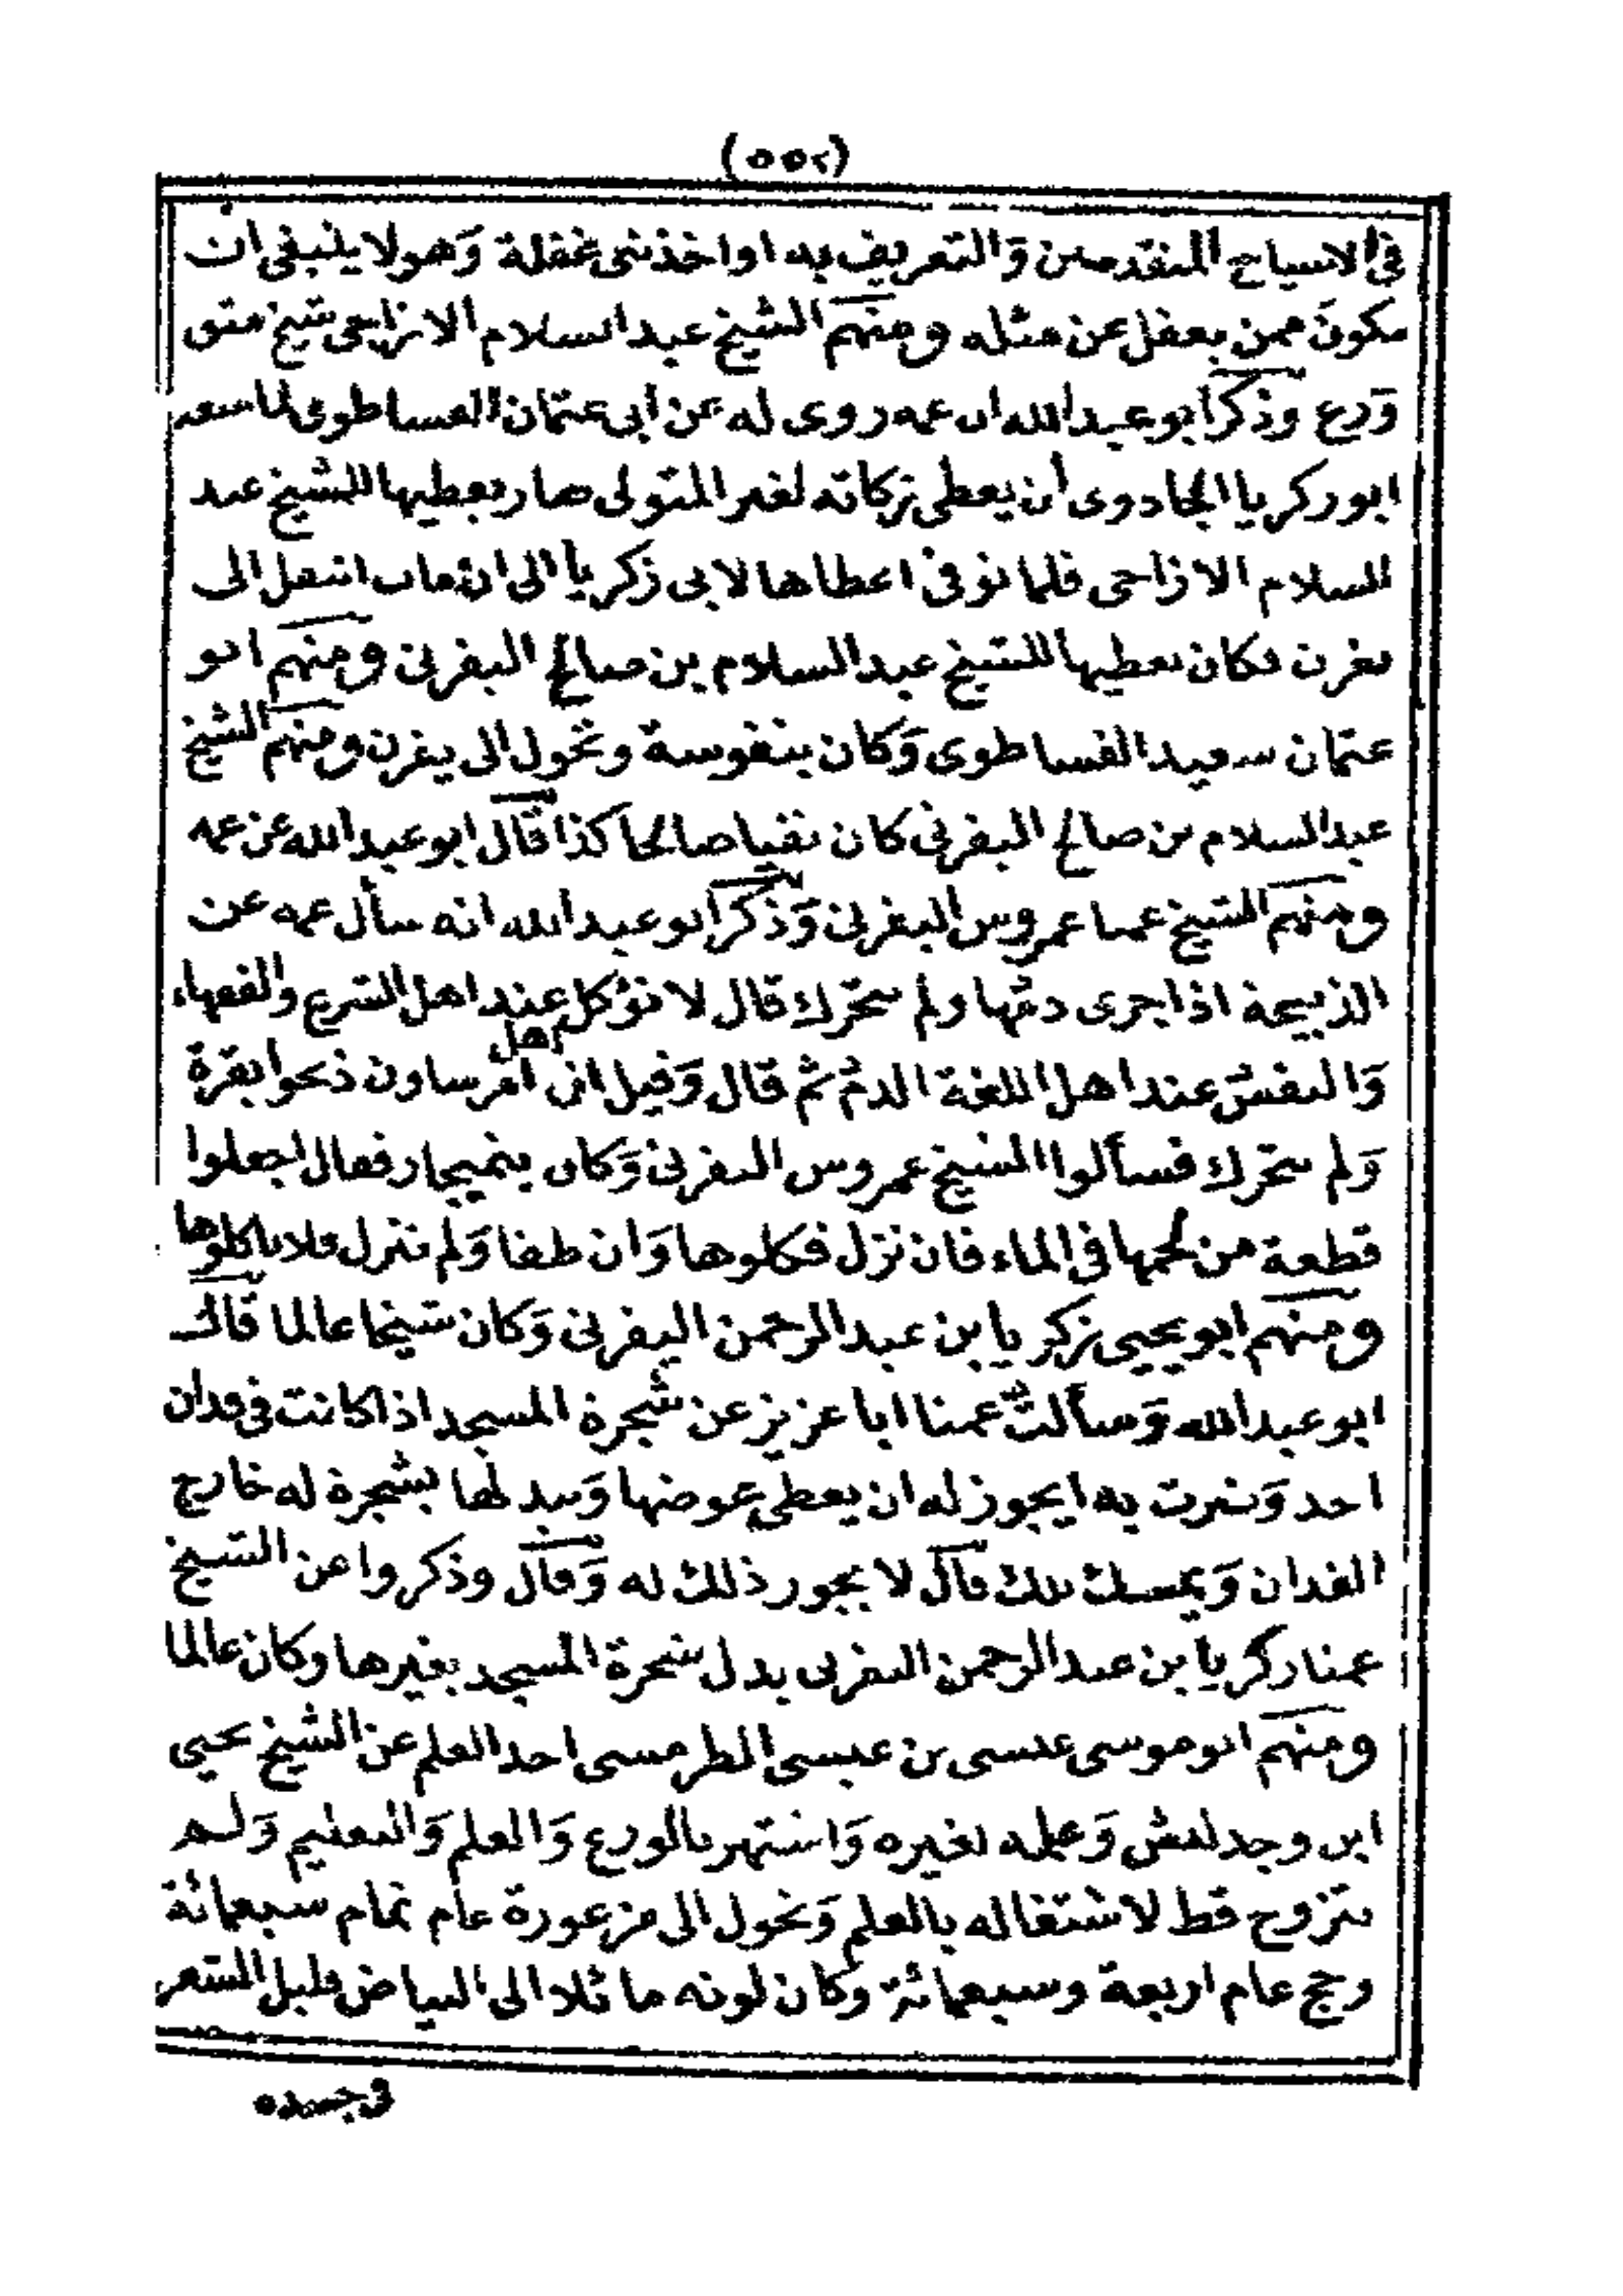 (٥٥٢)
فى الاشياخ المتقدمين وَالتعريف به او اخذتنى غفلة وَهو لا ينبغى ان
يكون ممن يغفل عن مثله ومنهم الشيخ عبد السلام الازاجى شيخ متق
وَرع وذكر ابو عبد الله ان عمه روى له عن ابى عثمان الفساطوى لما منعه
ابو زكريا الجادوى أن يعطى زكاته لغير المتولى صار يعطيها للشيخ عبد
السلام الازاجى فلما توفى اعطاها لابى زكريا الى ان مات انتقل الى
يفرن فكان يعطيها للشيخ عبد السلام بن صالح اليفرنى ومنهم ابو
عثمان سعيد الفساطوى وَكان بنفوسة وتحول الى يفرن ومنهم الشيخ
عبد السلام بن صالح اليفرنى كان تقيا صالحا كذا قال ابو عبد الله عن عمه
ومنهم الشيخ عمنا عمروس اليفرنى وَذكر ابو عبد الله انه سأل عمه عن
الذبيحة اذا جرى دمها ولم تتحرك قال لا تؤكل عند اهل الشرع والفقهاء
وَالنفس عند اهل اللغة الدم ثم قال وَقيل ان اهل امرساون ذبحوا بقرة
وَلم تتحرك فسألوا الشيخ عمروس اليفرنى وَكان بتميجار فقال اجعلوا
قطعة من لحمها فى الماء فان نزل فكلوها وَان طفا وَلم تنزل فلا تاكلوها
ومنهم ابو يحيى زكريا بن عبد الرحمن اليفرنى وَكان شيخا عالما قال
ابو عبد الله وَسألت عمنا ابا عزيز عن شجرة المسجد اذا كانت فى فدان
احد وَضرت به ايجوز له ان يعطى عوضها وَيبدلها بشجرة له خارج
الفدان وَيمسك تلك قال لا يجوز ذلك له وَقال وذكروا عن الشيخ
عمنا زكريا بن عبد الرحمن اليفرنى بدل شجرة المسجد بغيرها وكان عالما
ومنهم ابو موسى عيسى بن عيسى الطرميسى اخذ العلم عن الشيخ يحيى
ابن وجدليش وَعلمه لغيره وَاشتهر بالورع وَالعلم وَالتعليم وَلم
يتزوج قط لاشتغاله بالعلم وَتحول الى مزغورة عام تمام سبعمائة
وحج عام اربعة وسبعمائة وكان لونه مائلا الى البياض قليل الشعر
فى جسده